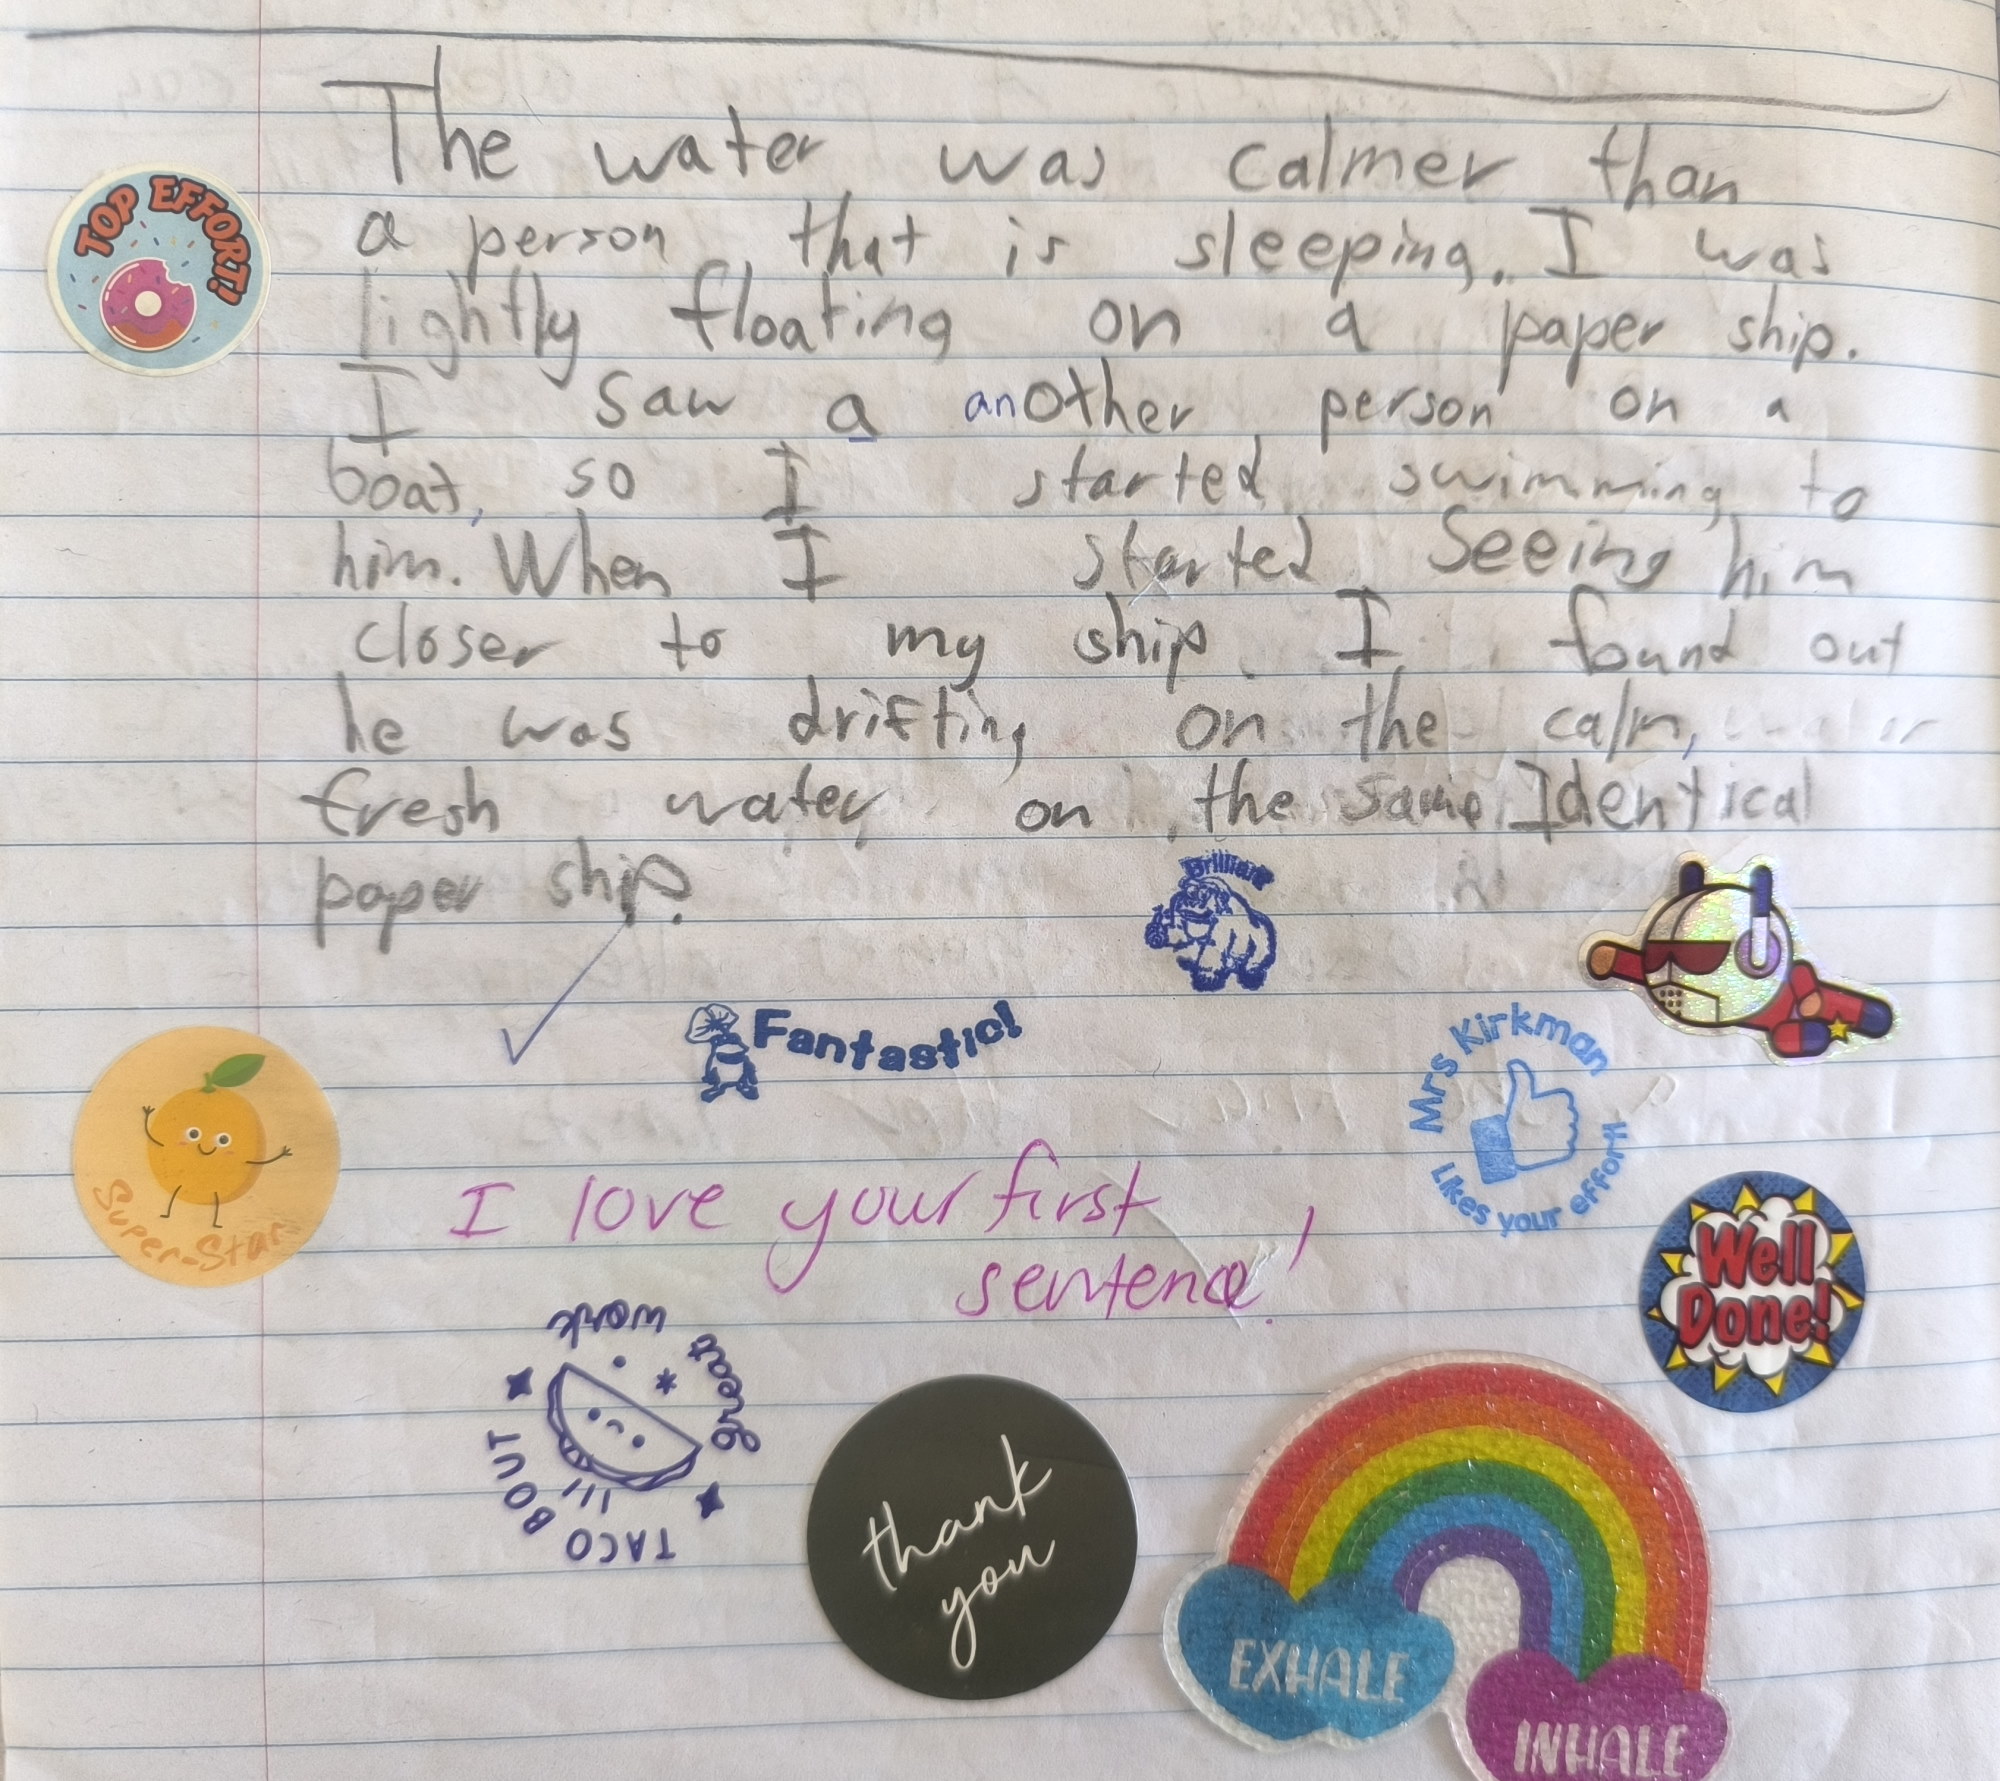 The water was calmer than
TOP EFFORT!
a person that is sleeping. I was
lightly floating on a paper ship.
I saw a another person on a
boat, so I started swimming to
him. When I started Seeing him
closer to my ship I found out
he was drifting on the calm,
fresh water on the same Identical
paper ship.
Brilliant
Fantastic!
Mrs Kirkman
Likes your effort!
Super-Star
I love your first
sentence!
Well
Done!
TACO BOUT
great
work
thank
you
EXHALE
INHALE